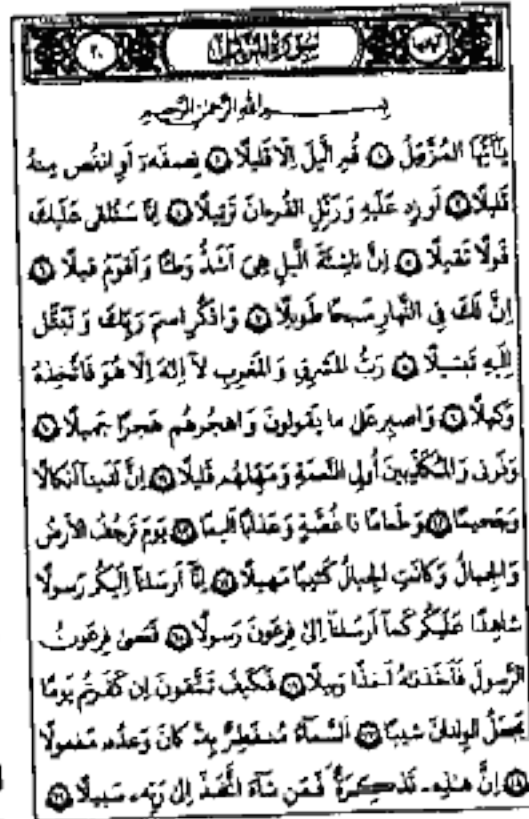 سورة المزمل ٢٠
بسم الله الرحمن الرحيم
يَٰٓأَيُّهَا ٱلْمُزَّمِّلُ ١ قُمِ ٱلَّيْلَ إِلَّا قَلِيلًا ٢ نِّصْفَهُۥٓ أَوِ ٱنقُصْ مِنْهُ
قَلِيلًا ٣ أَوْ زِدْ عَلَيْهِ وَرَتِّلِ ٱلْقُرْءَانَ تَرْتِيلًا ٤ إِنَّا سَنُلْقِى عَلَيْكَ
قَوْلًا ثَقِيلًا ٥ إِنَّ نَاشِئَةَ ٱلَّيْلِ هِىَ أَشَدُّ وَطْـًٔا وَأَقْوَمُ قِيلًا ٦
إِنَّ لَكَ فِى ٱلنَّهَارِ سَبْحًا طَوِيلًا ٧ وَٱذْكُرِ ٱسْمَ رَبِّكَ وَتَبَتَّلْ
إِلَيْهِ تَبْتِيلًا ٨ رَّبُّ ٱلْمَشْرِقِ وَٱلْمَغْرِبِ لَآ إِلَٰهَ إِلَّا هُوَ فَٱتَّخِذْهُ
وَكِيلًا ٩ وَٱصْبِرْ عَلَىٰ مَا يَقُولُونَ وَٱهْجُرْهُمْ هَجْرًا جَمِيلًا ١٠
وَذَرْنِى وَٱلْمُكَذِّبِينَ أُو۟لِى ٱلنَّعْمَةِ وَمَهِّلْهُمْ قَلِيلًا ١١ إِنَّ لَدَيْنَآ أَنكَالًا
وَجَحِيمًا ١٢ وَطَعَامًا ذَا غُصَّةٍ وَعَذَابًا أَلِيمًا ١٣ يَوْمَ تَرْجُفُ ٱلْأَرْضُ
وَٱلْجِبَالُ وَكَانَتِ ٱلْجِبَالُ كَثِيبًا مَّهِيلًا ١٤ إِنَّآ أَرْسَلْنَآ إِلَيْكُمْ رَسُولًا
شَٰهِدًا عَلَيْكُمْ كَمَآ أَرْسَلْنَآ إِلَىٰ فِرْعَوْنَ رَسُولًا ١٥ فَعَصَىٰ فِرْعَوْنُ
ٱلرَّسُولَ فَأَخَذْنَٰهُ أَخْذًا وَبِيلًا ١٦ فَكَيْفَ تَتَّقُونَ إِن كَفَرْتُمْ يَوْمًا
يَجْعَلُ ٱلْوِلْدَٰنَ شِيبًا ١٧ ٱلسَّمَآءُ مُنفَطِرٌۢ بِهِۦ كَانَ وَعْدُهُۥ مَفْعُولًا
١٨ إِنَّ هَٰذِهِۦ تَذْكِرَةٌ فَمَن شَآءَ ٱتَّخَذَ إِلَىٰ رَبِّهِۦ سَبِيلًا ١٩